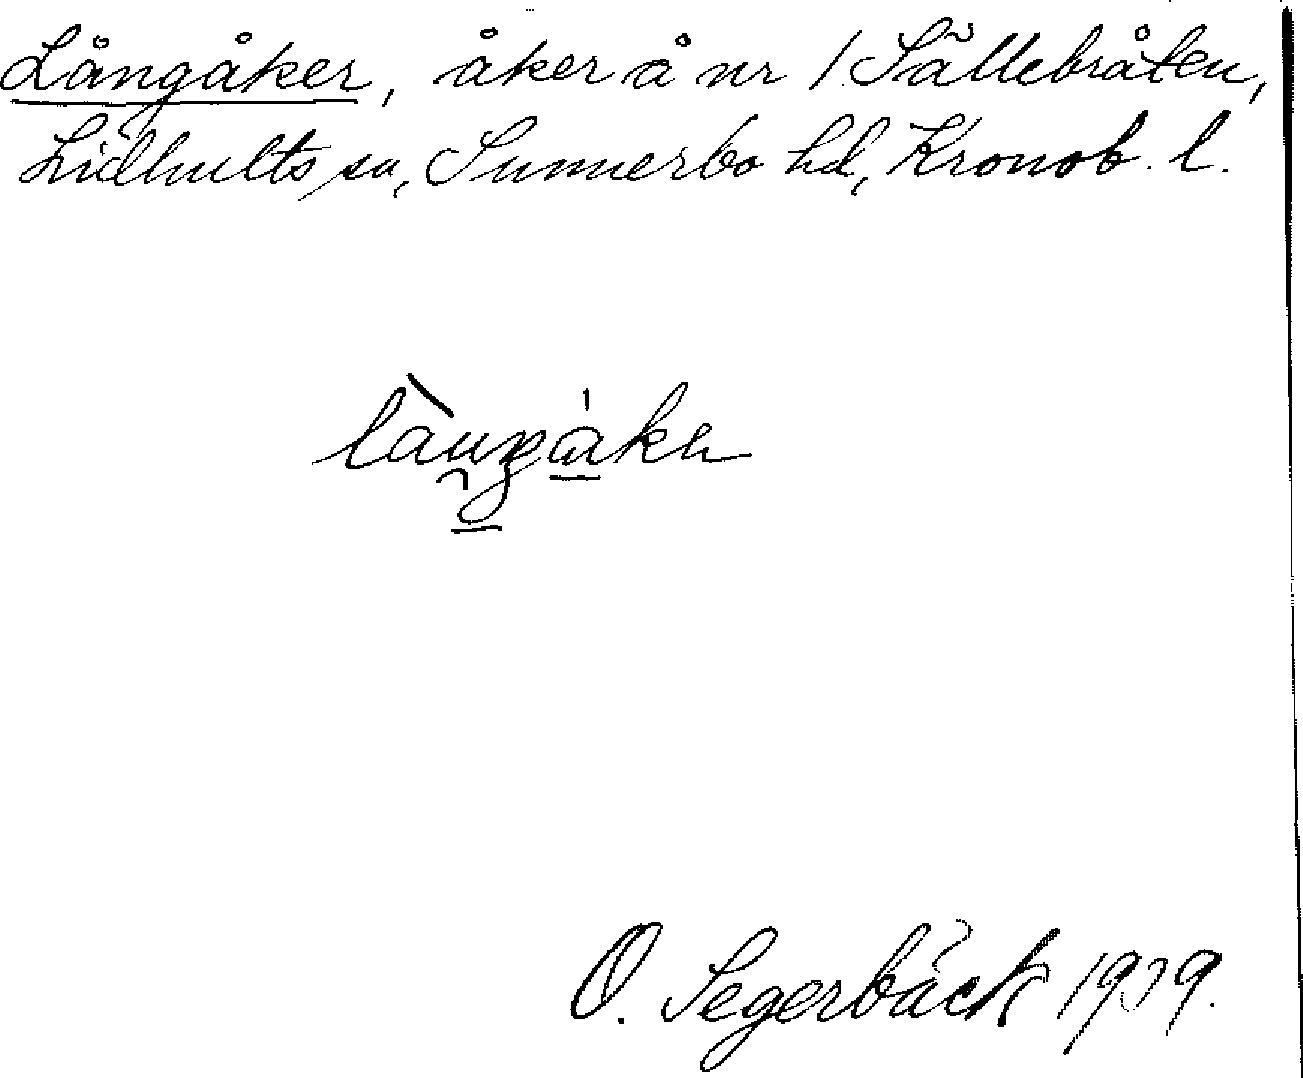 Långåker, åker å nr 1 Sällebråten,
Lidhults sn, Sunnerbo hd, Kronob. l.
O. Segerbäck 1939.